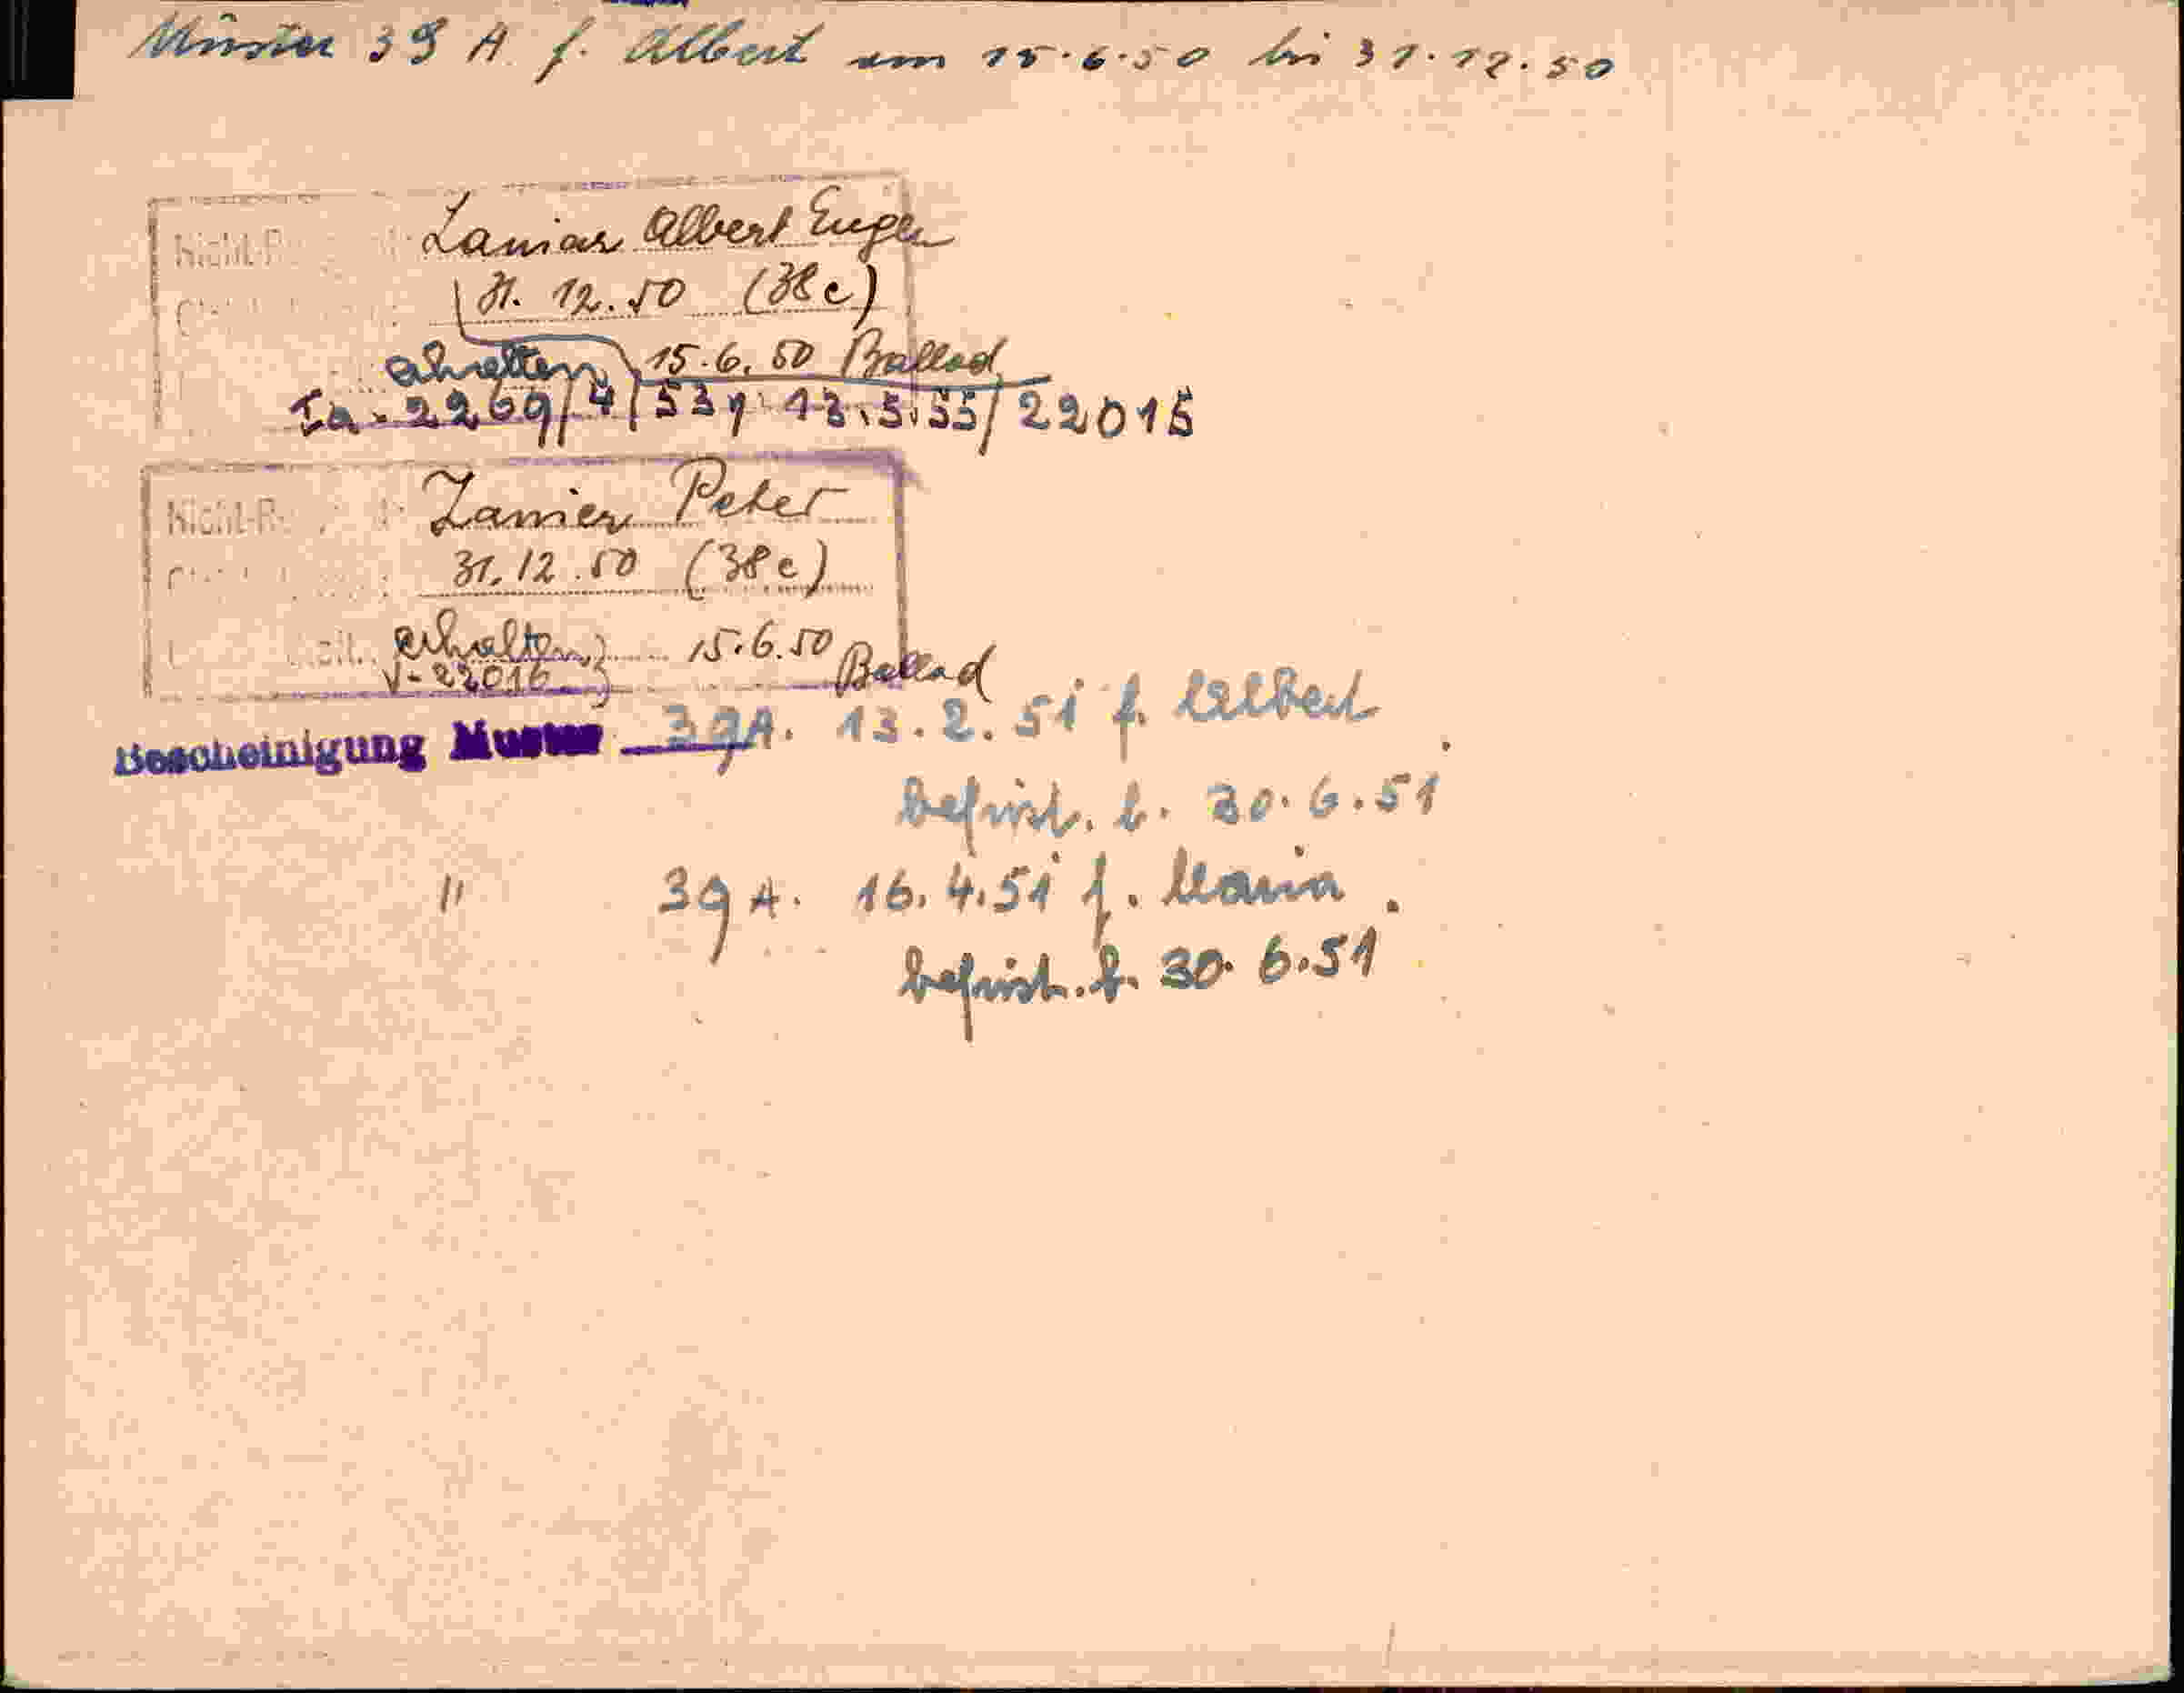 Muster 39 A f. Albert am 15.6.50 bis 31.12.50
Nicht-R Zanier Albert Eugen
31. 12. 50 (38c)
erhalten 15.6.50 Ballod
Ia-2269/4/53, 13.5.55/22015
Nicht-R Zanier Peter
31.12.50 (38c)
erhalten 15.6.50 Ballod
V-22016
Bescheinigung Muster 39A. 13.2.51 f. Albert
befrist. b. 30.6.51
" 39A. 16.4.51 f. Maria.
befrist. b. 30.6.51